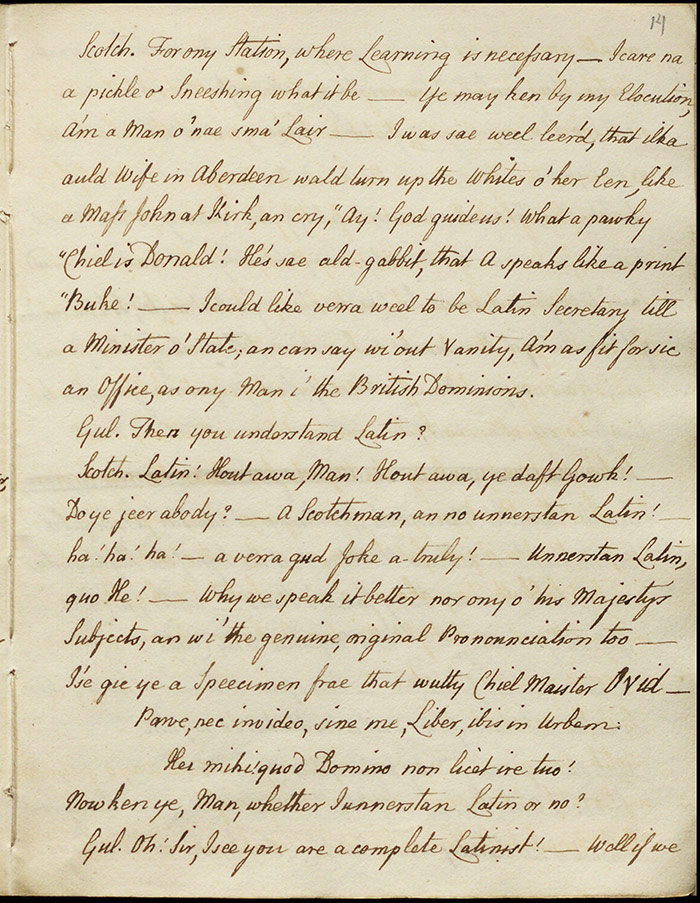 14
Scotch. For ony Station, where Learning is necessary — I care na
a pickle o' Sneeshing what it be — Ye may ken by my Elocution,
A'm a Man o' nae sma' Lair — I was sae weel leer'd, that ilka
auld Wife in Aberdeen wald turn up the Whites o' her Een, like
a Mass John at Kirk, an cry, "Ay! God guide us! What a pawky
"Chiel is Donald! He's sae ald-gabbit, that A speaks like a print
"Buke! — I could like verra weel to be Latin Secretary till
a Minister o' State; an can say wi'out Vanity, A'm as fit for sic
an Office, as ony Man i' the British Dominions.
Gul. Then you understand Latin?
Scotch. Latin! Hout awa, Man! Hout awa, ye daft Gowk! —
Do ye jeer a body? — A Scotchman, an no unnerstan Latin! —
ha! ha! ha! — a verra gud Joke a-truly! — Unnerstan Latin,
quo He! — Why we speak it better nor ony o' his Majestys
Subjects, an wi' the genuine, original Pronounciation too —
I'se gie ye a Speecimen frae that wutty Chiel Maister Ovid —
Parve, nec invideo, sine me, Liber, ibis in Urbem:
Hei mihi! quod Domino non licet ire tuo!
Now ken ye, Man, whether I unnerstan Latin or no?
Gul. Oh! Sir, I see you are a complete Latinist! — Well if we